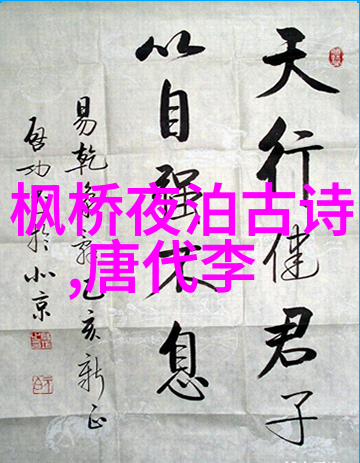 枫桥夜泊古诗
,唐代李
天行健君子
以自强不息
易乾象辞己亥新正
启功 於北京